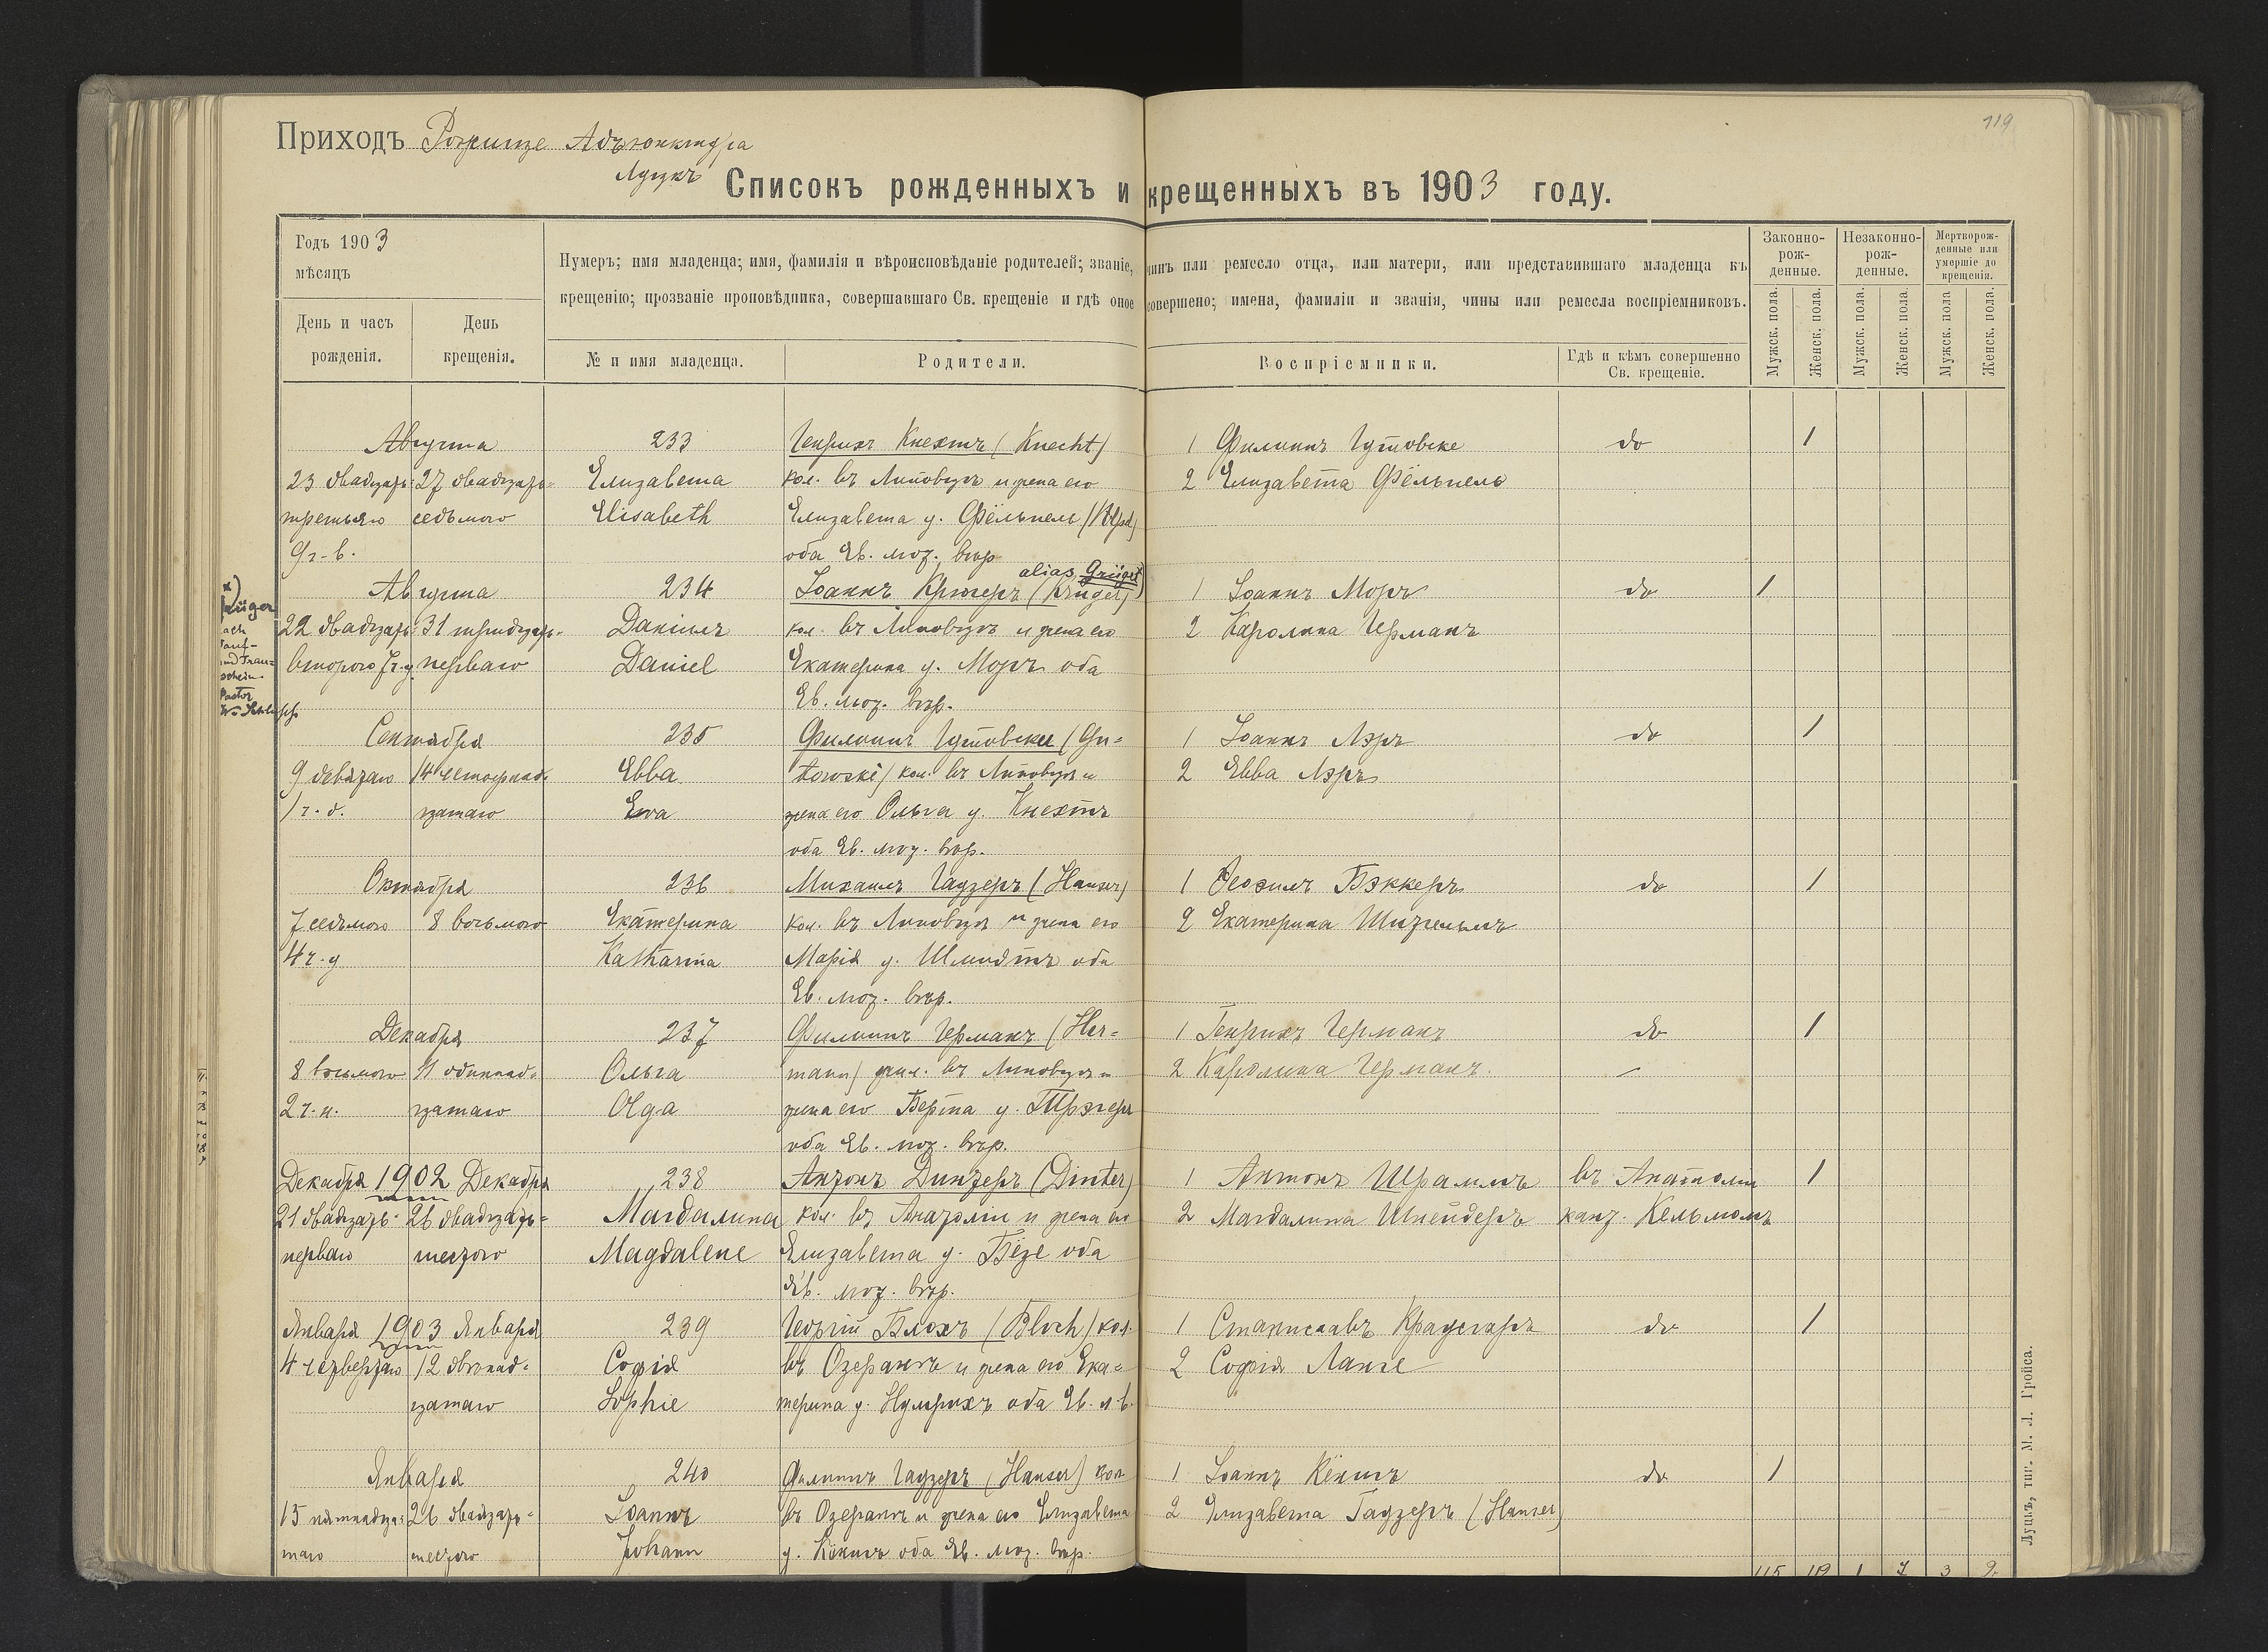 119
Приходъ Рожище Адъюнктура
Луцкъ
Списокъ рожденныхъ и крещенныхъ въ 1903 году.
Годъ 1903
мѣсяцъ
День и часъ рожденія.
День крещенія.
Нумеръ; имя младенца; имя, фамилія и вѣроисповѣданіе родителей; званіе, чинъ или ремесло отца, или матери, или представившаго младенца къ
крещенію; прозваніе проповѣдника, совершавшаго Св. крещеніе и гдѣ оное совершено; имена, фамиліи и званія, чины или ремесла воспріемниковъ.
№ и имя младенца.
Родители.
Воспріемники.
Гдѣ и кѣмъ совершенно
Св. крещеніе.
Законно-
рож-
денные.
Незаконно-
рож-
денные.
Мертворож-
денные или
умершіе до
крещенія.
Мужск. пола.
Женск. пола.
Мужск. пола.
Женск. пола.
Мужск. пола
Женск. пола.
Августа 233 Генрихъ Кнехтъ (Knecht) 1 Филиппъ Гутовске do 1
23 двадцать 27 двадцать- Елизавета кол. въ Липовцѣ и жена его 2 Елизавета Фёльпель
третьяго седьмого Elisabeth Елизавета у. Фёльпель
9 ч. в. оба Ев. лют. вѣр.
alias Grüger
Августа 234 Іоаннъ Крюгеръ (Krüger) 1 Іоаннъ Моръ do 1
22 двадцать 31 тридцать- Даніилъ кол. въ Липовцѣ и жена его 2 Каролина Германъ
второго 7 ч. у. перваго Daniel Екатерина у. Моръ оба
Ев. лют. вѣр.
x)
Krüger
Pastor
Сентября 235 Филиппъ Гутовски (Gu- 1 Іоаннъ Лэръ do 1
9 девятаго 14 четырнад- Евва towski) кол. въ Липовцѣ и 2 Евва Лэръ
1 ч. д. цатаго Ewa жена его Ольга у. Кнехтъ
оба Ев. лют. вѣр.
Октября 236 Михаилъ Гаузеръ (Hauser) 1 Теофилъ Бэккеръ do 1
7 седьмого 8 восьмого Екатерина кол. въ Липовцѣ и жена его 2 Екатерина
4 ч. у Katharina Марія у. Шмидтъ оба
Ев. лют. вѣр.
Декабря 237 Филиппъ Германъ (Her- 1 Генрихъ Германъ do 1
8 восьмого 11 одиннад- Ольга mann) въ Липовцѣ и 2 Каролина Германъ.
2 ч. н. цатаго Olga жена его Берта у. Трэгеръ
оба Ев. лют. вѣр.
Декабря 1902 Декабря 238 Антонъ Динтеръ (Dinter) 1 Антонъ Шраммъ въ Анатоліи 1
21 двадцать- 26 двадцать- Магдалина кол. въ Анатоліи и жена его 2 Магдалина Шнейдеръ кант. Кельмомъ
перваго шестого Magdalene Елизавета у. Бёзе оба
Ев. лют. вѣр.
Января 1903 Января 239 Георгій Блохъ (Bloch) кол. 1 Станиславъ do 1
4 четвертаго 12 двѣнад- Софія въ Озеранѣ и жена его Ека- 2 Софія Ланге
цатаго Sophie терина у. оба Ев. л. в.
Января 240 Филиппъ Гаузеръ (Hauser) кол. 1 Іоаннъ Кёнигъ do 1
15 пятнадца- 26 двадцать- Іоаннъ въ Озеранѣ и жена его Елизавета 2 Елизавета Гаузеръ (Hauser)
таго шестого Johann у. Кёнигъ оба Ев. лют. вѣр.
Луцкъ, тип. М. Л. Гройса.